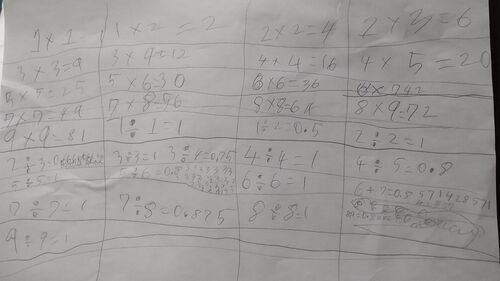 1 × 1 = 1 1 × 2 = 2 2 × 2 = 4 2 × 3 = 6
3 × 3 = 9 3 × 4 = 12 4 × 4 = 16 4 × 5 = 20
5 × 5 = 25 5 × 6 = 30 6 × 6 = 36 6 × 742
7 × 7 = 49 7 × 8 = 56 8 × 8 = 64 8 × 9 = 72
9 × 9 = 81 1 ÷ 1 = 1 1 ÷ 2 = 0.5 2 ÷ 2 = 1
2 ÷ 3 = 3 ÷ 3 = 1 3 ÷ 4 = 0.75 4 ÷ 4 = 1 4 ÷ 5 = 0.8
5 ÷ 5 = 1 5 ÷ 6 = 0.8 6 ÷ 6 = 1 6 ÷ 7 = 0.8571428571
7 ÷ 7 = 1 7 ÷ 8 = 0.875 8 ÷ 8 = 1
9 ÷ 9 = 1